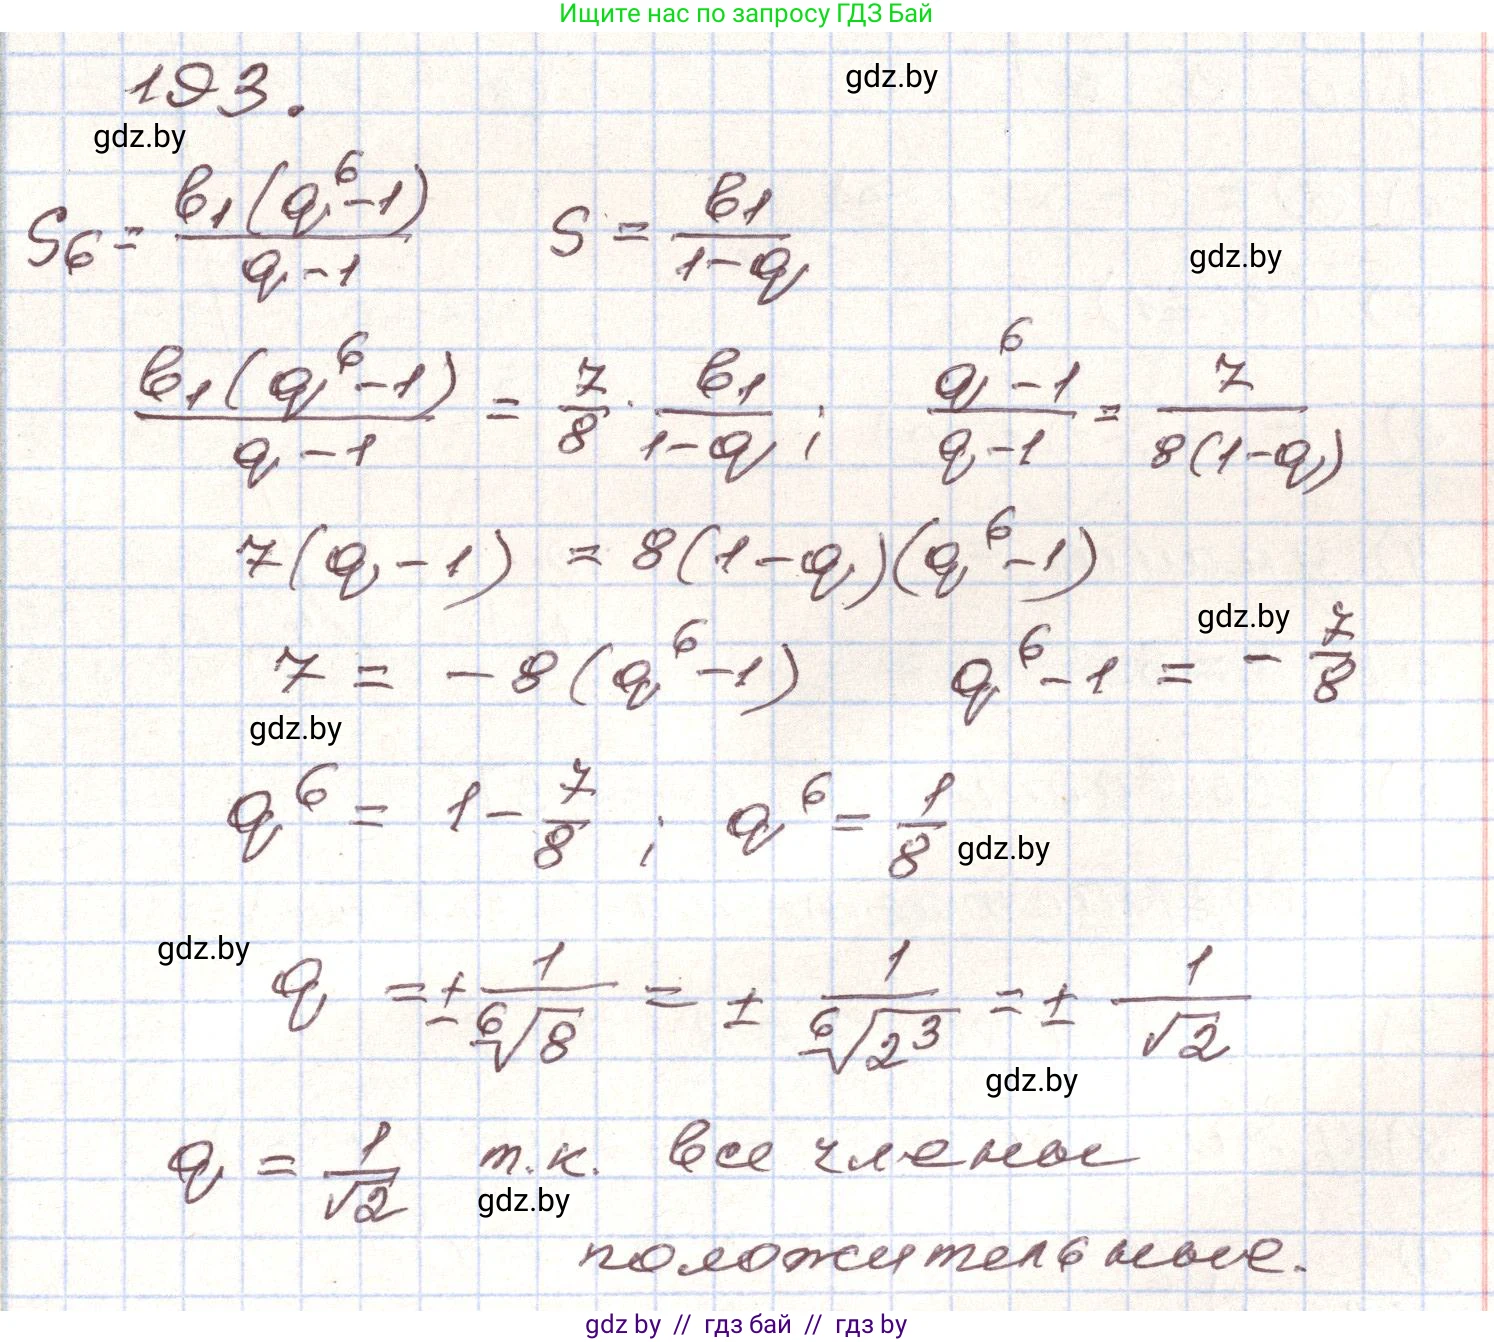 Ищите нас по запросу ГДЗ Бай
193.
gdz.by
gdz.by
S₆ = b₁(q⁶-1)/(q-1)   S = b₁/(1-q)
gdz.by
b₁(q⁶-1)/(q-1) = 7/8 · b₁/(1-q) ;   (q⁶-1)/(q-1) = 7/(8(1-q))
7(q-1) = 8(1-q)(q⁶-1)
gdz.by
7 = -8(q⁶-1)   q⁶-1 = -7/8
gdz.by
q⁶ = 1 - 7/8 ;   q⁶ = 1/8
gdz.by
gdz.by
q = ± 1/⁶√8 = ± 1/⁶√2³ = ± 1/√2
gdz.by
q = 1/√2   т.к. все члены
gdz.by
положительные.
gdz.by // гдз бай // гдз by